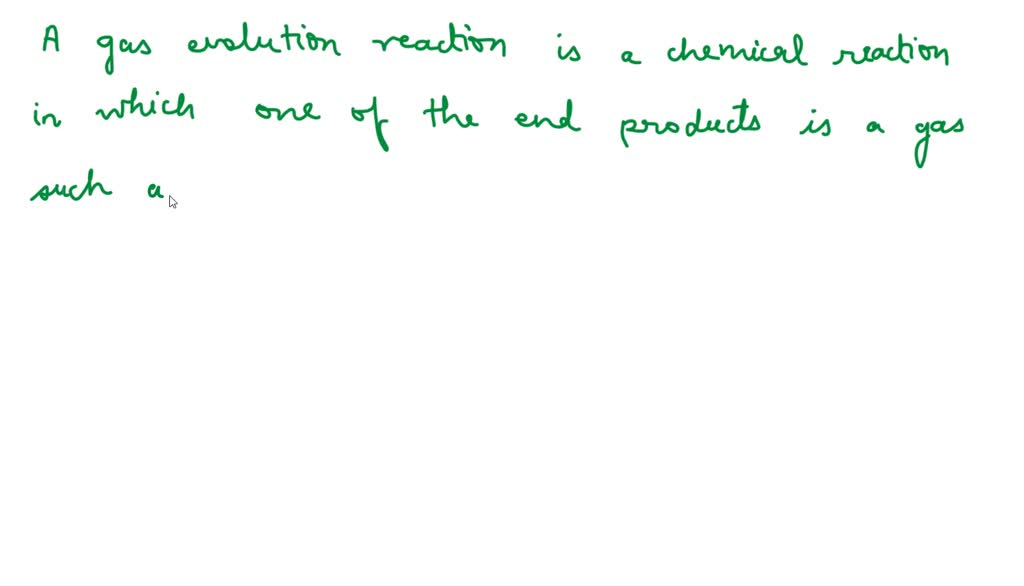 A gas evolution reaction is a chemical reaction
in which one of the end products is a gas
such a